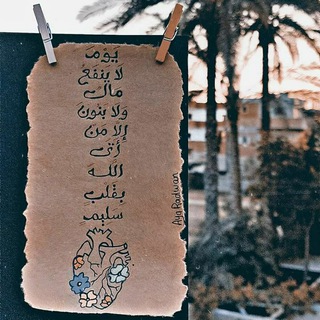 يَوْمَ
لَا يَنْفَعُ
مَالٌ
وَلَا بَنُونَ
إِلَّا مَنْ
أَتَى
اللَّهَ
بِقَلْبٍ
سَلِيمٍ
Aya Radwan